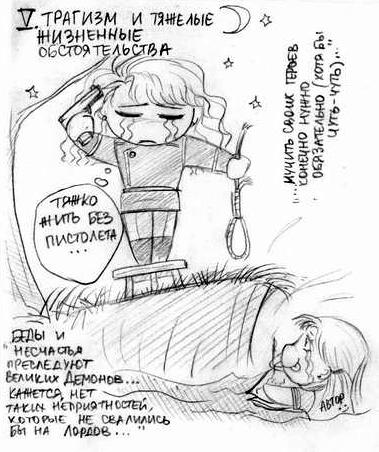 V. ТРАГИЗМ И ТЯЖЕЛЫЕ
ЖИЗНЕННЫЕ
ОБСТОЯТЕЛЬСТВА
"...МУЧИТЬ СВОИХ ГЕРОЕВ
КОНЕЧНО НУЖНО
ОБЯЗАТЕЛЬНО (ХОТА БЫ
ЧУТЬ-ЧУТЬ)..."
ТЯЖКО
ЖИТЬ БЕЗ
ПИСТОЛЕТА
...
БЕДЫ И
"НЕСЧАСТЬЯ
ПРЕСЛЕДУЮТ
ВЕЛИКИХ ДЕМОНОВ...
КАЖЕТСЯ, НЕТ
ТАКИХ НЕПРИЯТНОСТЕЙ,
КОТОРЫЕ НЕ СВАЛИЛИСЬ
БЫ НА ЛОРДОВ..."
АВТОР